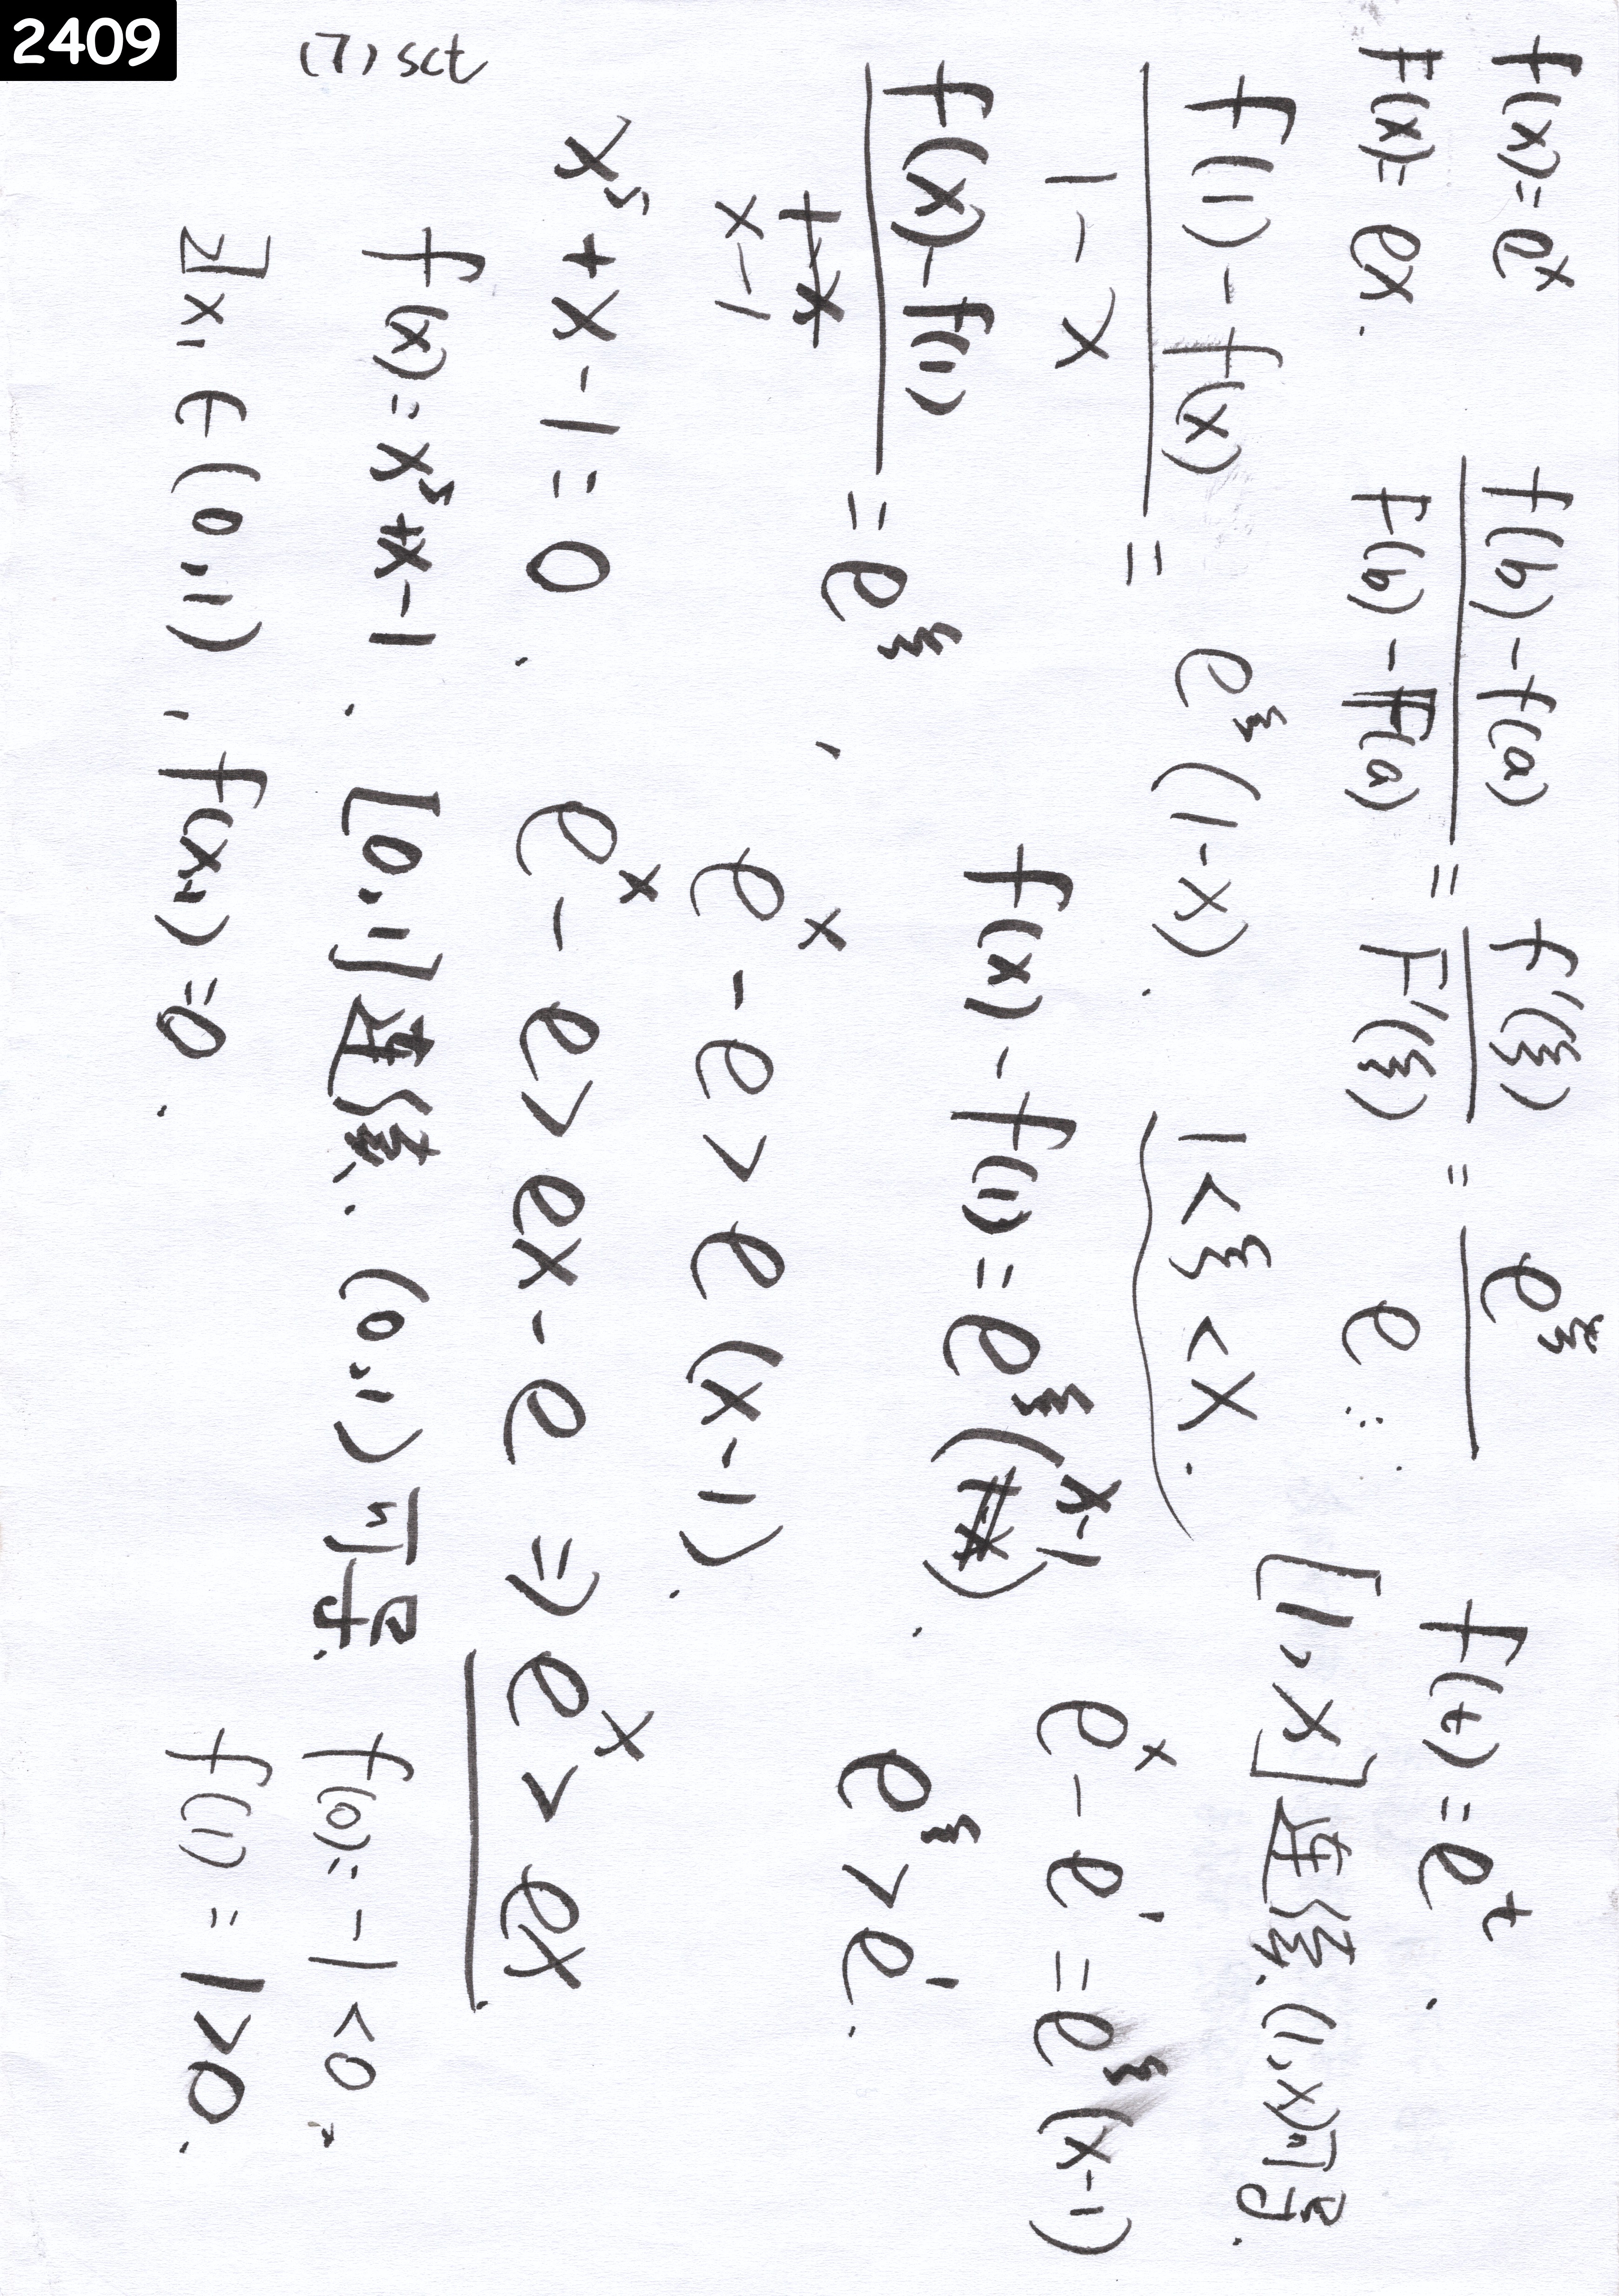 2409
(7) sct
f(x)=e^x
F(x)=ex.
(f(b)-f(a))/(F(b)-F(a)) = f'(ξ)/F'(ξ) = e^ξ/e
f(t)=e^t.
[1,x]连续.(1,x)可导.
(f(1)-f(x))/(1-x) = e^ξ(1-x).
1<ξ<x.
f(x)-f(1)=e^ξ(x-1).
e^x-e^1=e^ξ(x-1)
(f(x)-f(1))/(x-1) = e^ξ,
e^ξ>e^1.
e^x-e>e(x-1).
e^x-e>ex-e⇒e^x>ex.
x^5+x-1=0.
f(x)=x^5+x-1. [0,1]连续.(0,1)可导.
f(0)=-1<0.
f(1)=1>0.
∃x₁∈(0,1), f(x₁)=0.